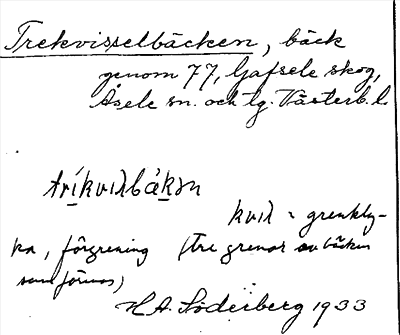 Trekvisselbäcken, bäck
genom 77, Gafsele skog,
Åsele sn. och lg. Västerb. l.
kvil = grenkly-
ka, förgrening (tre grenar av bäcken
som förenas)
H.A. Söderberg 1933